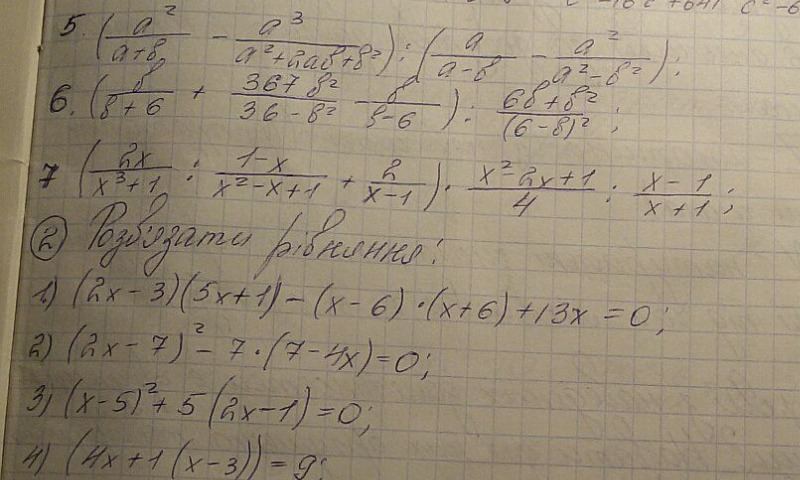 c² - 6
5. (a²/(a+b) - a³/(a²+2ab+b²)) : (a/(a-b) - a²/(a²-b²));
6. (b/(b+6) + 367b²/(36-b²) - b/(b-6)) : (6b+b²)/(6-b)²;
7 (2x/(x³+1) : (1-x)/(x²-x+1) + 2/(x-1)) · (x²-2x+1)/4 : (x-1)/(x+1);
② Розв'язати рівняння:
1) (2x-3)(5x+1) - (x-6)·(x+6) + 13x = 0;
2) (2x-7)² - 7·(7-4x) = 0;
3) (x-5)² + 5(2x-1) = 0;
4) (4x+1(x-3)) = 9;